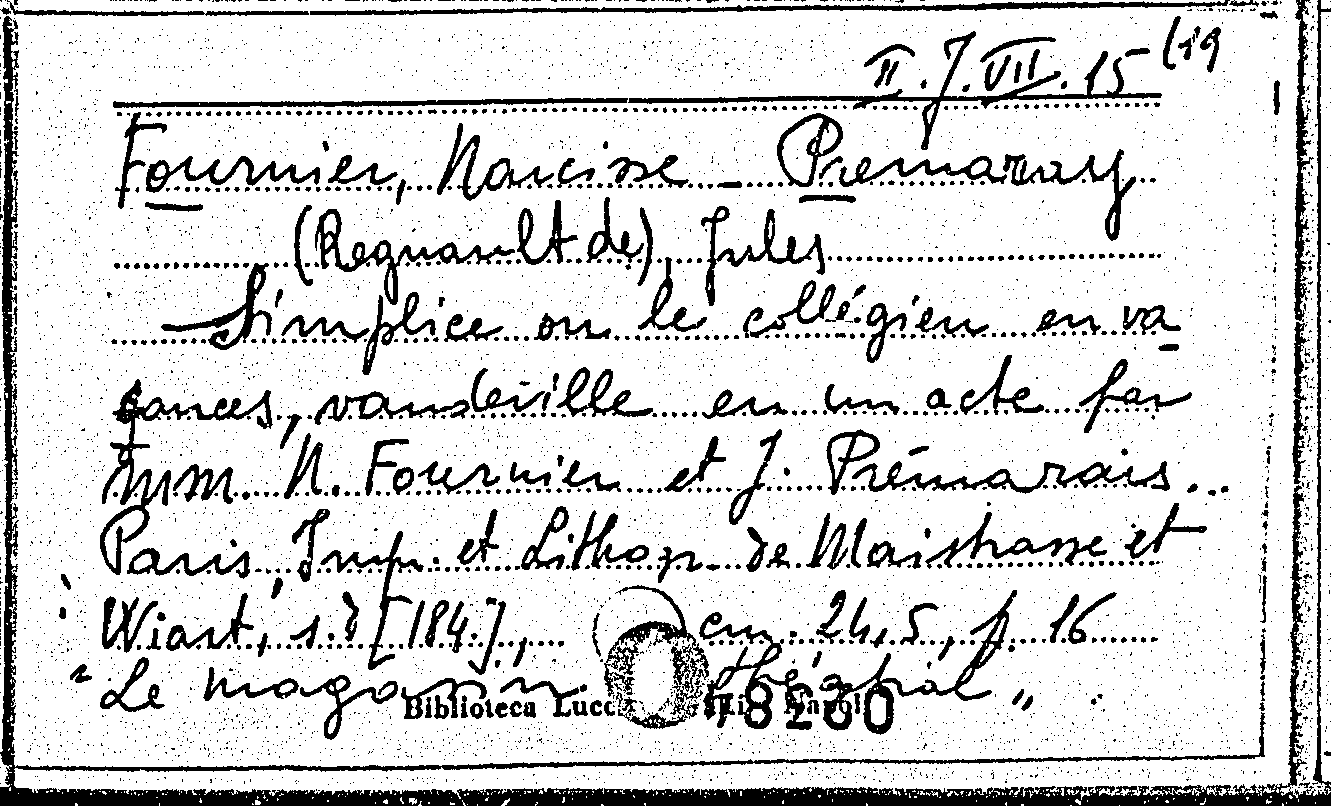 II.J.VII.15 (19
Fournier, Narcisse - Premaray
(Regnault de), Jules
Simplice ou le collégien en va
cances, vaudeville en un acte par
MM. N. Fournier et J. Prémarais...
Paris, Imp. et Lithogr. de Maistrasse et
Wiart, s.d [184.], cm. 24,5, p. 16
"Le magasin théâtral".
Biblioteca Lucchesi Palli Napoli